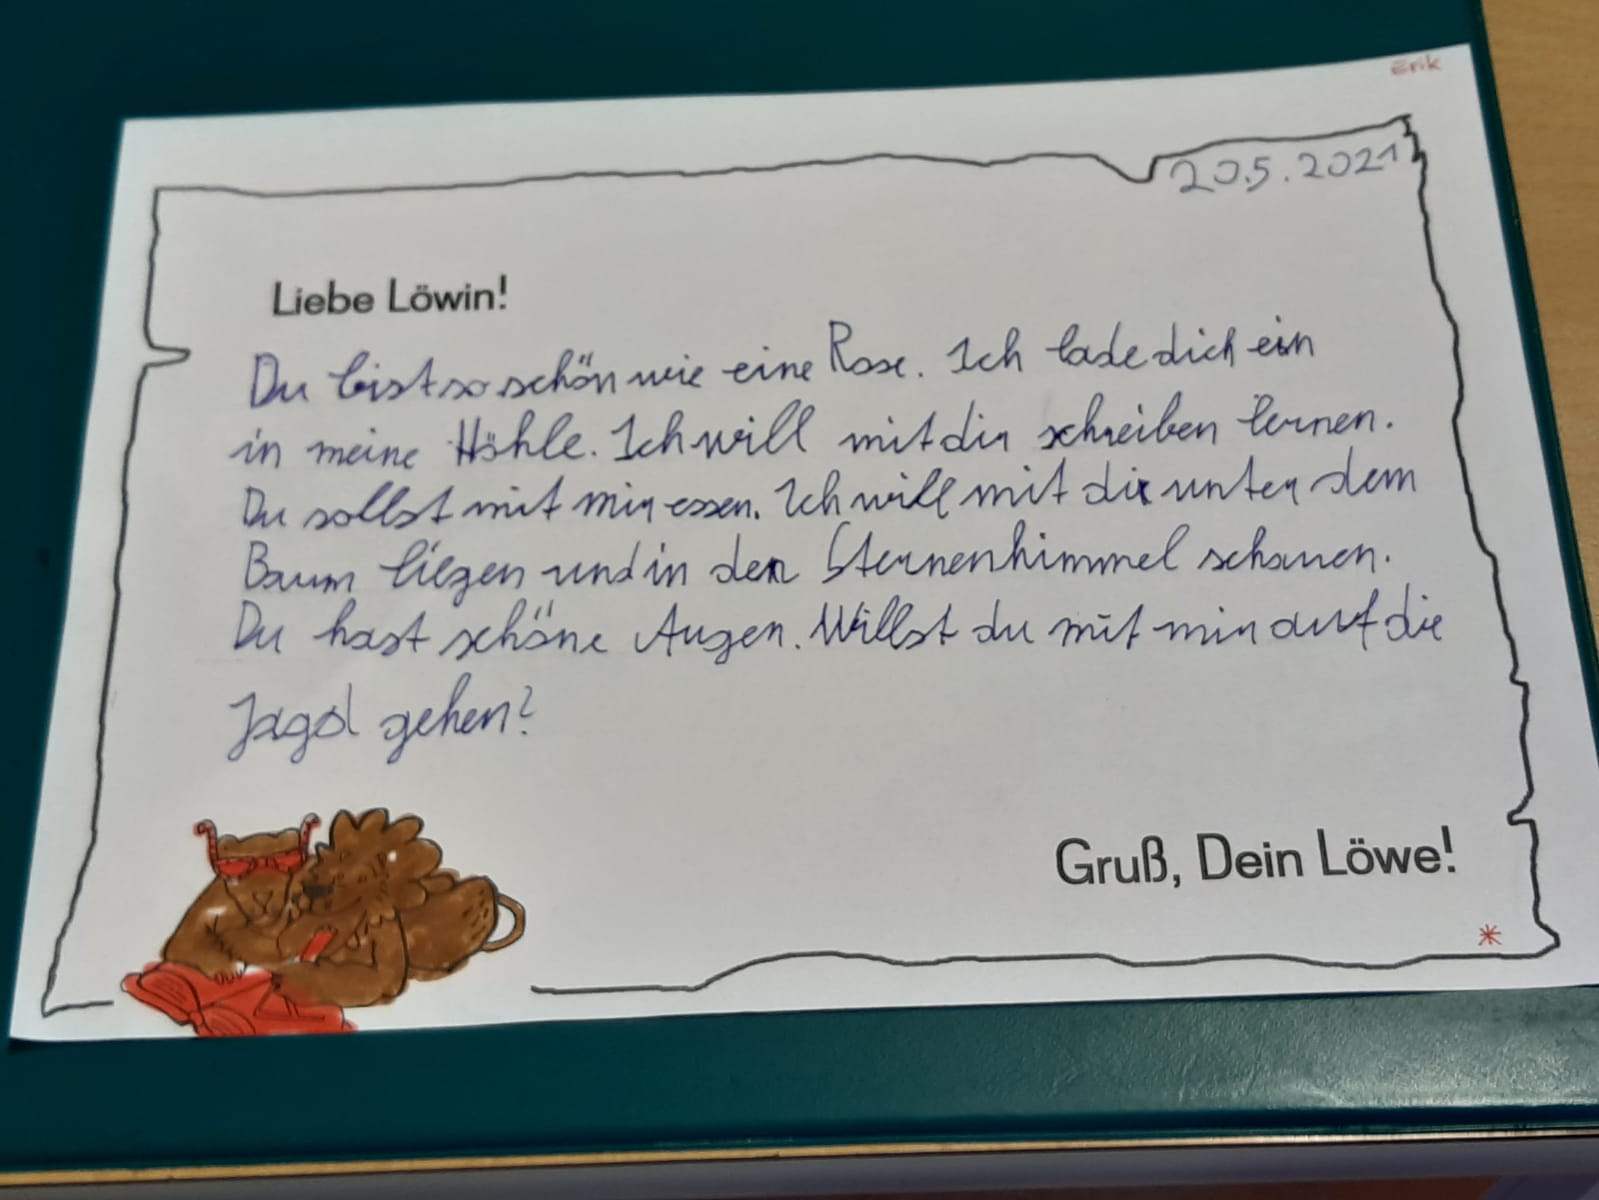 Erik
20.5.2021
Liebe Löwin!
Du bist so schön wie eine Rose. Ich lade dich ein
in meine Höhle. Ich will mit dir schreiben lernen.
Du sollst mit mir essen. Ich will mit dir unter dem
Baum liegen und in den Sternenhimmel schauen.
Du hast schöne Augen. Willst du mit mir auf die
Jagd gehen?
Gruß, Dein Löwe!